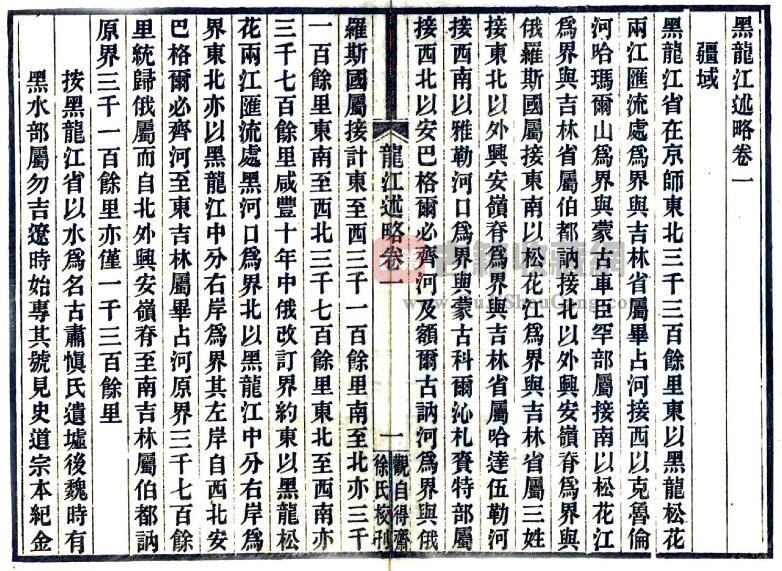 黑龍江述略卷一
疆域
黑龍江省在京師東北三千三百餘里東以黑龍松花
兩江匯流處為界與吉林省屬畢占河接西以克魯倫
河哈瑪爾山為界與蒙古車臣罕部屬接南以松花江
為界與吉林省屬伯都訥接北以外興安嶺脊為界與
俄羅斯國屬接東南以松花江為界與吉林省屬三姓
接東北以外興安嶺脊為界與吉林省屬哈達伍勒河
接西南以雅勒河口為界與蒙古科爾沁札賚特部屬
接西北以安巴格爾必齊河及額爾古訥河為界與俄
龍江述略卷一
一
觀自得齋
徐氏校刊
羅斯國屬接計東至西三千一百餘里南至北亦三千
一百餘里東南至西北三千七百餘里東北至西南亦
三千七百餘里咸豐十年中俄改訂界約東以黑龍松
花兩江匯流處黑河口為界北以黑龍江中分右岸為
界東北亦以黑龍江中分右岸為界其左岸自西北安
巴格爾必齊河至東吉林屬畢占河原界三千七百餘
里統歸俄屬而自北外興安嶺脊至南吉林屬伯都訥
原界三千一百餘里亦僅一千三百餘里
按黑龍江省以水為名古肅愼氏遺墟後魏時有
黑水部屬勿吉遼時始專其號見史道宗本紀金